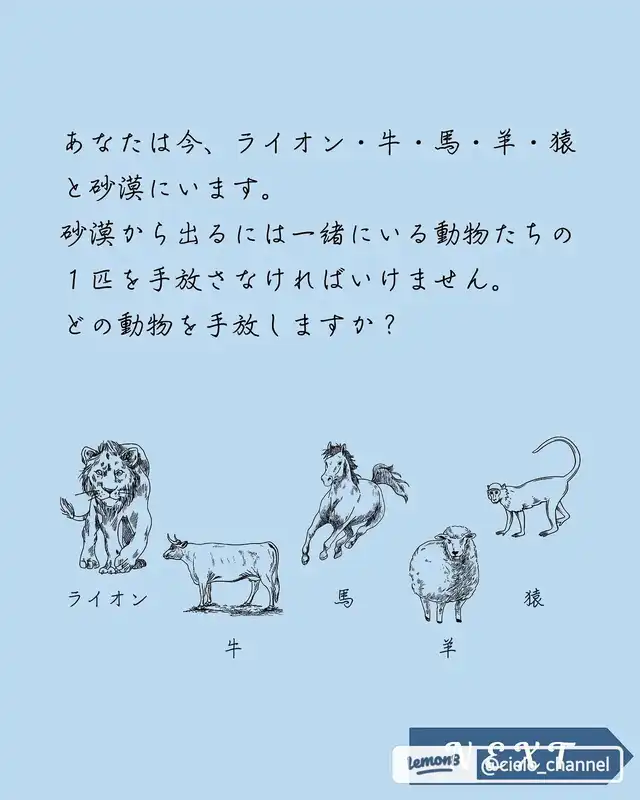 あなたは今、ライオン・牛・馬・羊・猿
と砂漠にいます。
砂漠から出るには一緒にいる動物たちの
１匹を手放さなければいけません。
どの動物を手放しますか？
ライオン
牛
馬
羊
猿
NEXT
lemon8
@cielo_channel